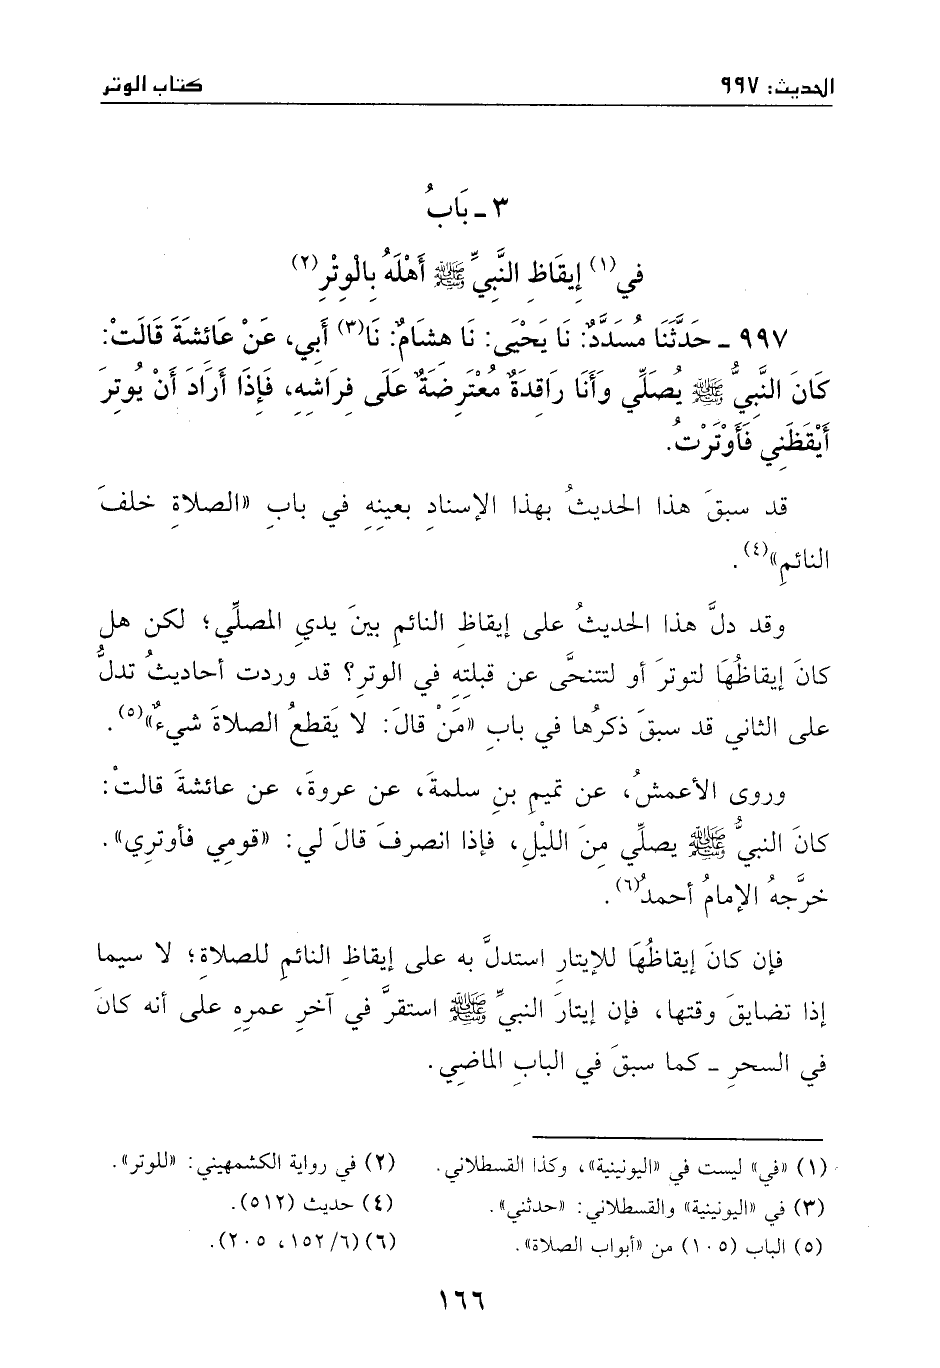 الحديث: ٩٩٧
كتاب الوتر
٣ - بَابُ
في(١) إيقَاظِ النَّبِيِّ ﷺ أَهْلَهُ بِالْوِتْرِ(٢)
٩٩٧ - حَدَّثَنَا مُسَدَّدٌ: نَا يَحْيَى: نَا هِشَامٌ: نَا(٣) أَبي، عَنْ عَائشَةَ قَالَتْ:
كَانَ النَّبِيُّ ﷺ يُصَلِّي وَأَنَا رَاقِدَةٌ مُعْتَرِضَةٌ عَلَى فِرَاشِهِ، فَإِذَا أَرَادَ أَنْ يُوتِرَ
أَيْقَظَنِي فَأَوْتَرْتُ.
قد سبقَ هذا الحديثُ بهذا الإسنادِ بعينِهِ في بابِ «الصلاةِ خلفَ
النائمِ»(٤).
وقد دلَّ هذا الحديثُ على إيقاظِ النائمِ بينَ يديِ المصلِّي؛ لكن هل
كانَ إيقاظُهَا لتوترَ أو لتتنحَّى عن قبلتِهِ في الوترِ؟ قد وردت أحاديثُ تدلُّ
على الثاني قد سبقَ ذكرُها في بابِ «مَنْ قالَ: لا يَقطعُ الصلاةَ شيءٌ»(٥).
وروى الأعمشُ، عن تميمِ بنِ سلمةَ، عن عروةَ، عن عائشةَ قالتْ:
كانَ النبيُّ ﷺ يصلِّي مِنَ الليْلِ، فإذا انصرفَ قالَ لي: «قومِي فأوتري».
خرَّجهُ الإمامُ أحمدُ(٦).
فإن كانَ إيقاظُهَا للإيتارِ استدلَّ به على إيقاظِ النائمِ للصلاةِ؛ لا سيما
إذا تضايقَ وقتها، فإن إيتارَ النبيِّ ﷺ استقرَّ في آخرِ عمرِهِ على أنه كانَ
في السحرِ - كما سبقَ في البابِ الماضِي.
(١) «في» ليست في «اليونينية»، وكذا القسطلاني.
(٢) في رواية الكشمهيني: «للوتر».
(٣) في «اليونينية» والقسطلاني: «حدثني».
(٤) حديث (٥١٢).
(٥) الباب (١٠٥) من «أبواب الصلاة».
(٦) (٦/١٥٢، ٢٠٥).
١٦٦